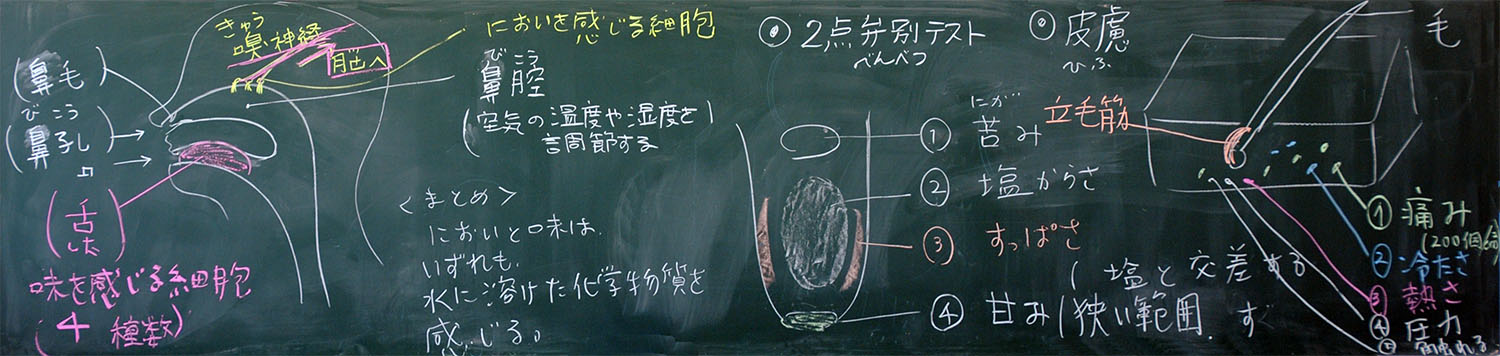 きゅう
嗅神経
脳へ
においを感じる細胞
(鼻毛)
びこう
(鼻孔)
口
(舌)
した
味を感じる細胞
(4種数)
びこう
鼻腔
(空気の温度や湿度を調節する)
<まとめ>
においと味は、
いずれも、
水に溶けた化学物質を
感じる。
◎2点弁別テスト
べんべつ
にが
①苦み
②塩からさ
③すっぱさ
(塩と交差する
④甘み(狭い範囲.
◎皮慮
ひふ
毛
立毛筋
①痛み
(200個
②冷たさ
③熱さ
④圧力
⑤触れる